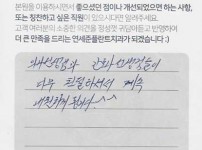 본원을 이용하시면서 좋으셨던 점이나 개선되었으면 하는 사항,
또는 칭찬하고 싶은 직원이 있으시다면 알려주세요.
고객 여러분의 소중한 의견을 정성껏 귀담아듣고 반영하여
더 큰 만족을 드리는 연세준플란트치과가 되겠습니다 :)
간호사 선생님들이
너무 친절하셔서 계속